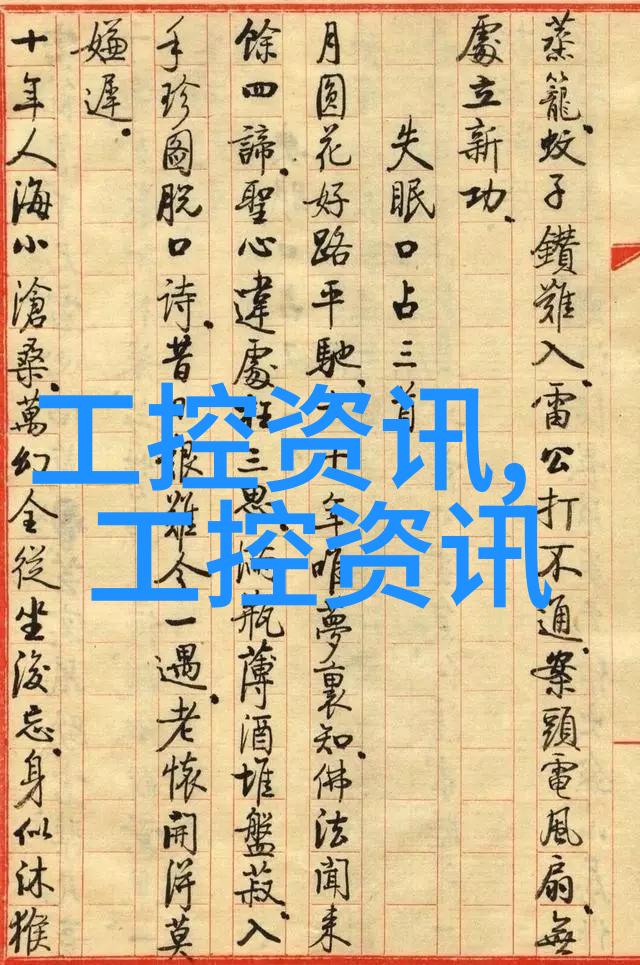 蒸籠。蚊子鑽難入。雷公打不通。案頭電風扇。無
處立新功。
失眠口占三首
月圓花好路平馳。十年唯夢裏知。佛法聞来
餘四諦。聖心違處三思。瓶薄酒堆盤菽。入
手珍圖脱口诗。昔難今一遇。老懷開得莫
嫌遲。
十年人海小滄桑。萬幻全從坐後忘。身似沐猴
工控资讯,
工控资讯